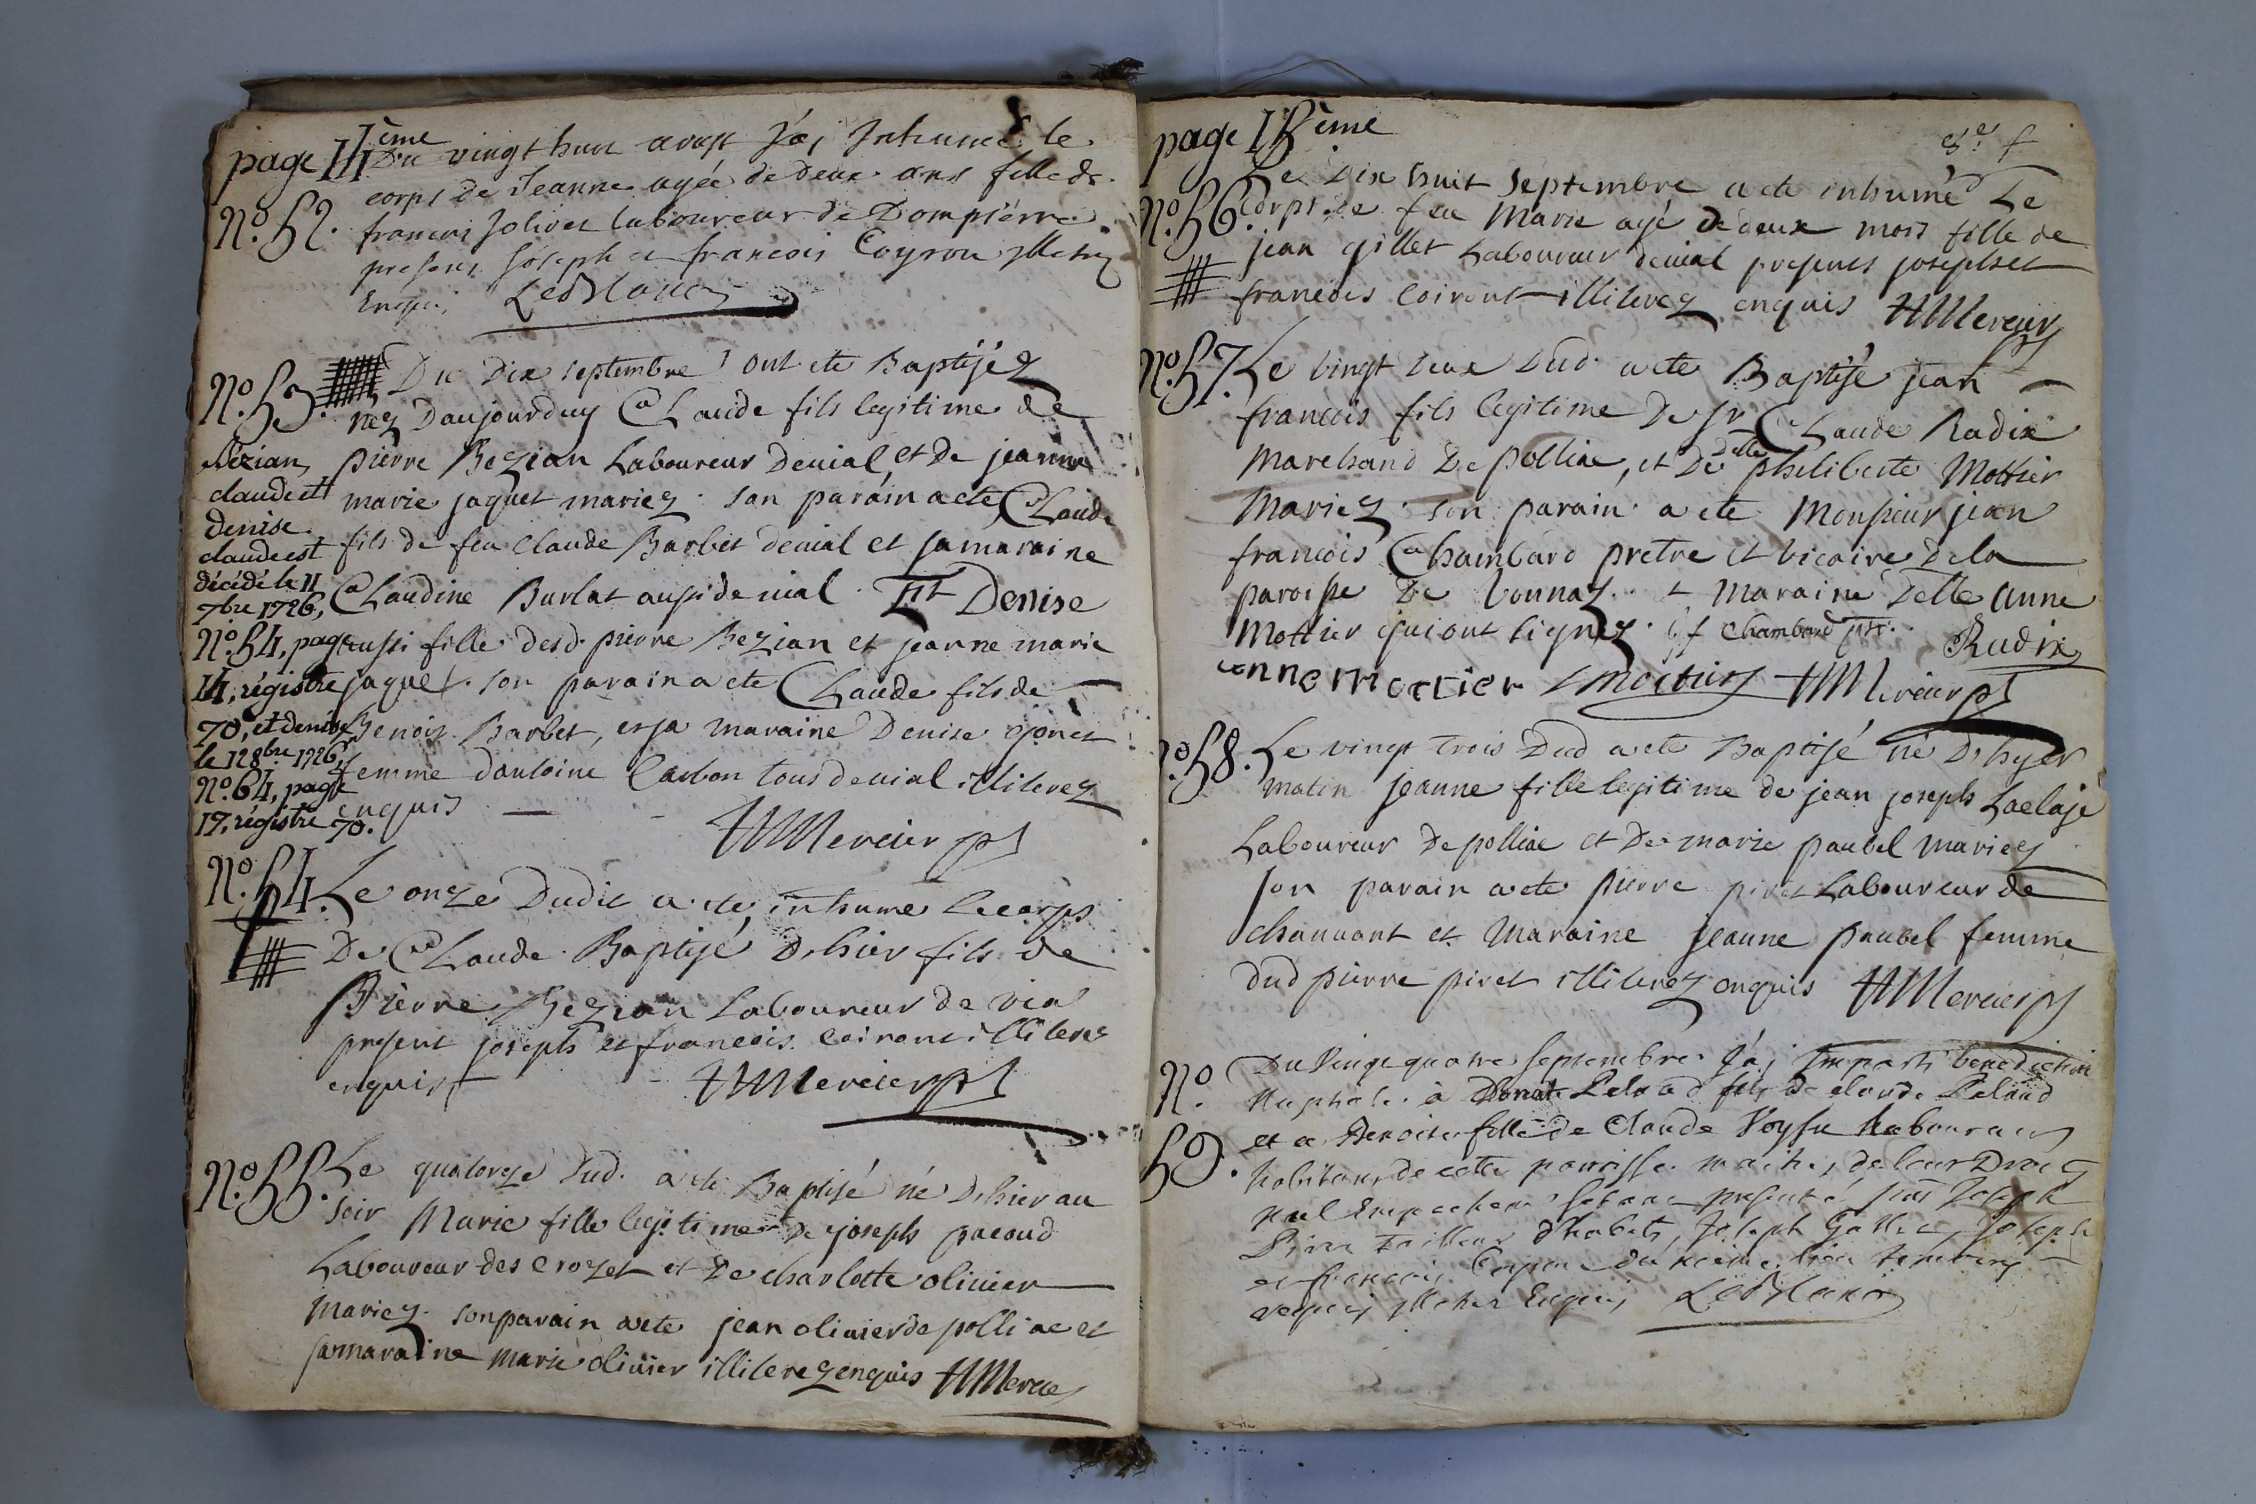 page 14ème
Du vingt huit aoust J'ai Inhumé le
N.º 52. corps de Jeanne agée de deux ans fille de
francois Jolivet laboureur de Dompierre
presens Joseph et francois Coyron illetrez
Enquis LeBlanc
N.º 53. Du Dix septembre ont ete Baptisez
nez Daujourduy Claude fils legitime de
pierre Bezian Laboureur Deuial et De jeanne
marie jaquet mariez. son parain a ete Claude
fils de feu Claude Barbet deuial et sa maraine
Claudine Burlat aussi de uial. Et Denise
aussi fille desd. pierre Bezian et jeanne marie
jaquet. son parain a ete Claude fils de
Benoit Barbet, et sa maraine Denise
femme d'antoine Carbon tous deuial illiterez
enquis HMercier ptr
Bézian,
claude et
denise.
claude est
décédé le 11
7bre 1726,
N.º 54, page
14, régistre
70, et denise
le 12 8bre 1726,
N.º 64, page
17, régistre 70.
N.º 54. Le onze Dudit a ete inhumé le corps
De Claude Baptisé D'hier fils de
Pierre Bezian Laboureur de vial
present joseph et francois Coiront illiterez
enquis HMercier ptr
N.º 55. Le quatorze Dud. a ete Baptisé né D'hier au
soir Marie fille legitime De joseph pacoud
Laboureur des crozet et De charlotte oliuier
mariez. son parain a ete jean oliuier de polliac et
sa maraine marie oliuier illiterez enquis HMercier
page 15ème
N.º 56. Le Dix huit septembre a ete inhumé Le
corps de feu Marie agé de deux mois fille de
jean gillet Laboureur deuial presents joseph et
francois Coiront illiterez enquis HMercier
N.º 57. Le vingt deux Dud. a ete Baptisé jean
francois fils legitime De Sr Claude Radix
marchand De polliac, et De delle philiberte Mottier
mariez. son parain a ete Monsieur jean
francois Chambard pretre et vicaire de la
paroisse De vonnaz et maraine Delle anne
Mottier qui ont signez. jf Chambard ptr. Radix
anne mottier Mottier HMercier ptr
N.º 58. Le vingt trois Dud a ete Baptisé né D'hyer
matin jeanne fille legitime de jean joseph
Laboureur de polliac et De marie paubel mariez
son parain a ete pierre piret Laboureur de
chauuant et maraine jeanne paubel femme
dud pierre piret illiterez enquis HMercier ptr
N.º 59. Du Vingt quatre septembre J'ai Imparti benediction
Nuptiale à Donat Peland fils de claude Peland
et a Benoite fille de Claude Laboureur
habitans de cette parroisse
Nul Empechem presents Joseph
tailleur d'habits, Joseph Joseph
et francois Coyron du meme lieu temoins
requis illetrez Enquis LeBlanc